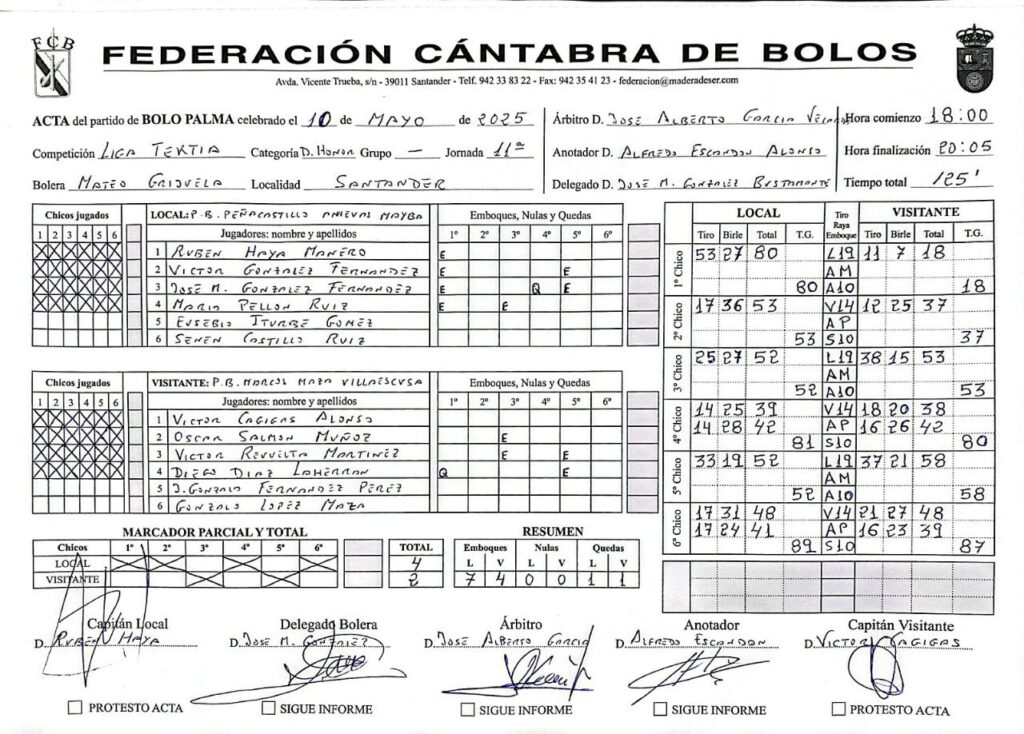 FCB
FEDERACIÓN CÁNTABRA DE BOLOS
Avda. Vicente Trueba, s/n - 39011 Santander - Telf. 942 33 83 22 - Fax: 942 35 41 23 - federacion@maderadeser.com
ACTA del partido de BOLO PALMA celebrado el 10 de MAYO de 2025
Competición LIGA TEKTIA Categoría D. HONOR Grupo — Jornada 11ª
Bolera MATEO GRIJUELA Localidad SANTANDER
Árbitro D. JOSE ALBERTO GARCIA
Anotador D. ALFREDO ESCANDON ALONSO
Delegado D. JOSE M. GONZALEZ BUSTAMANTE
Hora comienzo 18:00
Hora finalización 20:05
Tiempo total 125'
Chicos jugados LOCAL: P.B. PEÑACASTILLO ANIEVAS MAYBA Emboques, Nulas y Quedas
1 2 3 4 5 6 Jugadores: nombre y apellidos 1º 2º 3º 4º 5º 6º
1 RUBEN HAYA MANERO E
2 VICTOR GONZALEZ FERNANDEZ E E
3 JOSE M. GONZALEZ FERNANDEZ E Q E
4 MARIO PELLON RUIZ E E
5 EUSEBIO ITURBE GOMEZ
6 SENEN CASTILLO RUIZ
Chicos jugados VISITANTE: P.B. MARCOS MAZA VILLAESCUSA Emboques, Nulas y Quedas
1 2 3 4 5 6 Jugadores: nombre y apellidos 1º 2º 3º 4º 5º 6º
1 VICTOR CAGIGAS ALONSO
2 OSCAR SALMON MUÑOZ E
3 VICTOR REVUELTA MARTINEZ E E
4 DIEGO DIAZ LAHERRAN Q E
5 J. GONZALO FERNANDEZ PEREZ
6 GONZALO LOPEZ MAZA
MARCADOR PARCIAL Y TOTAL
Chicos 1º 2º 3º 4º 5º 6º TOTAL
LOCAL 4
VISITANTE 2
RESUMEN
Emboques Nulas Quedas
L V L V L V
7 4 0 0 1 1
LOCAL Tiro Raya Emboque VISITANTE
Tiro Birle Total T.G. Tiro Birle Total T.G.
1º Chico 53 27 80 L19 11 7 18
AM
80 A10 18
2º Chico 17 36 53 V14 12 25 37
AP
53 S10 37
3º Chico 25 27 52 L19 38 15 53
AM
52 A10 53
4º Chico 14 25 39 V14 18 20 38
14 28 42 AP 16 26 42
81 S10 80
5º Chico 33 19 52 L19 37 21 58
AM
52 A10 58
6º Chico 17 31 48 V14 21 27 48
17 24 41 AP 16 23 39
89 S10 87
Capitán Local
D. RUBEN HAYA
Delegado Bolera
D. JOSE M. GONZALEZ
Árbitro
D. JOSE ALBERTO GARCIA
Anotador
D. ALFREDO ESCANDON
Capitán Visitante
D. VICTOR CAGIGAS
PROTESTO ACTA
SIGUE INFORME
SIGUE INFORME
SIGUE INFORME
PROTESTO ACTA